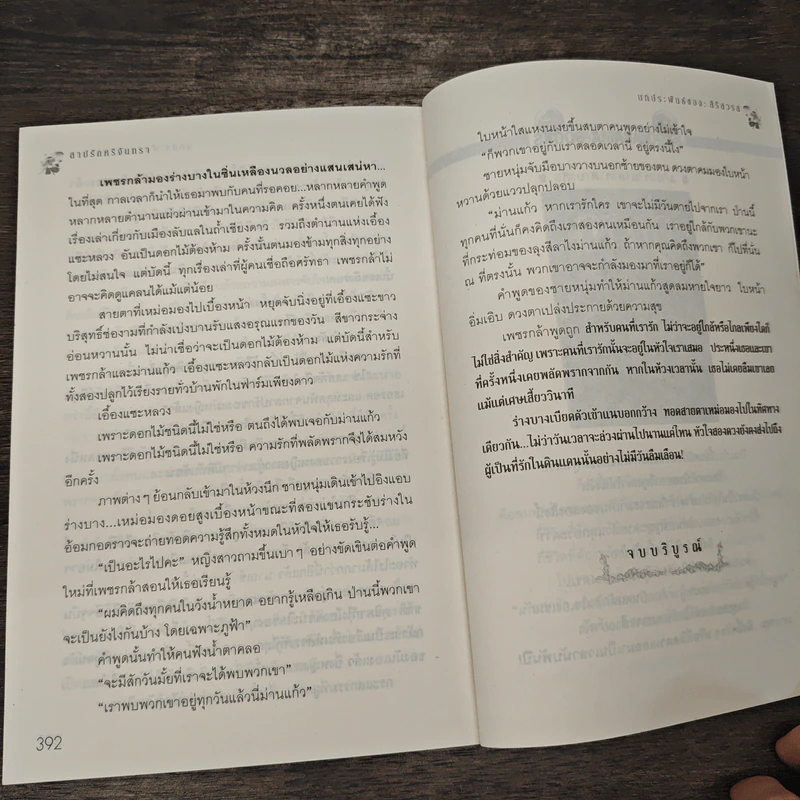 สาปรักศรีจันทรา
เพชรกล้ามองร่างบางในซิ่นเหลืองนวลอย่างแสนเสน่หา...
ในที่สุด กาลเวลาก็นำให้เธอมาพบกับคนที่รอคอย...หลากหลายคำพูด
หลากหลายตำนานแผ่วผ่านเข้ามาในความคิด ครั้งหนึ่งตนเคยได้ฟัง
เรื่องเล่าเกี่ยวกับเมืองลับแลในถ้ำเชียงดาว รวมถึงตำนานแห่งเอื้อง
แซะหลวง อันเป็นดอกไม้ต้องห้าม ครั้งนั้นตนมองข้ามทุกสิ่งทุกอย่าง
โดยไม่สนใจ แต่บัดนี้ ทุกเรื่องเล่าที่ผู้คนเชื่อถือศรัทธา เพชรกล้าไม่
อาจจะคิดดูแคลนได้แม้แต่น้อย
สายตาที่เหม่อมองไปเบื้องหน้า หยุดจับนิ่งอยู่ที่เอื้องแซะขาว
บริสุทธิ์ช่องามที่กำลังเบ่งบานรับแสงอรุณแรกของวัน สีขาวกระจ่าง
อ่อนหวานนั้น ไม่น่าเชื่อว่าจะเป็นดอกไม้ต้องห้าม แต่บัดนี้สำหรับ
เพชรกล้าและม่านแก้ว เอื้องแซะหลวงกลับเป็นดอกไม้แห่งความรักที่
ทั้งสองปลูกไว้เรียงรายทั่วบ้านพักในฟาร์มเพียงดาว
เอื้องแซะหลวง
เพราะดอกไม้ชนิดนี้ไม่ใช่หรือ ตนถึงได้พบเจอกับม่านแก้ว
เพราะดอกไม้ชนิดนี้ไม่ใช่หรือ ความรักที่พลัดพรากจึงได้สมหวัง
อีกครั้ง
ภาพต่างๆ ย้อนกลับเข้ามาในห้วงนึก ชายหนุ่มเดินเข้าไปอิงแอบ
ร่างบาง...เหม่อมองดอยสูงเบื้องหน้าขณะที่สองแขนกระชับร่างใน
อ้อมกอดราวจะถ่ายทอดความรู้สึกทั้งหมดในหัวใจให้เธอรับรู้...
“เป็นอะไรไปคะ” หญิงสาวถามขึ้นเบาๆ อย่างขัดเขินต่อคำพูด
ใหม่ที่เพชรกล้าสอนให้เธอเรียนรู้
“ผมคิดถึงทุกคนในวังน้ำหยาด อยากรู้เหลือเกิน ป่านนี้พวกเขา
จะเป็นยังไงกันบ้าง โดยเฉพาะภูฟ้า”
คำพูดนั้นทำให้คนฟังน้ำตาคลอ
“จะมีสักวันมั้ยที่เราจะได้พบพวกเขา”
“เราพบพวกเขาอยู่ทุกวันแล้วนี่ม่านแก้ว”
392
บทประพันธ์ของ: สิริสวรส
ใบหน้าใสแหงนเงยขึ้นสบตาคนพูดอย่างไม่เข้าใจ
“ก็พวกเขาอยู่กับเราตลอดเวลานี่ อยู่ตรงนี้ไง”
ชายหนุ่มจับมือบางวางบนอกซ้ายของตน ดวงตาคมมองใบหน้า
หวานด้วยแววปลุกปลอบ
“ม่านแก้ว หากเรารักใคร เขาจะไม่มีวันตายไปจากเรา ป่านนี้
ทุกคนที่นั่นก็คงคิดถึงเราสองคนเหมือนกัน เราอยู่ใกล้กับพวกเขานะ
ที่กระท่อมของลุงสีลาไงม่านแก้ว ถ้าหากคุณคิดถึงพวกเขา ก็ไปที่นั่น
ณ ที่ตรงนั้น พวกเขาอาจจะกำลังมองมาที่เราอยู่ก็ได้”
คำพูดของชายหนุ่มทำให้ม่านแก้วสูดลมหายใจยาว ใบหน้า
อิ่มเอิบ ดวงตาเปล่งประกายด้วยความสุข
เพชรกล้าพูดถูก สำหรับคนที่เรารัก ไม่ว่าจะอยู่ใกล้หรือไกลเพียงใดก็
ไม่ใช่สิ่งสำคัญ เพราะคนที่เรารักนั้นจะอยู่ในหัวใจเราเสมอ ประหนึ่งเธอและเขา
ที่ครั้งหนึ่งเคยพลัดพรากจากกัน หากในห้วงเวลานั้น เธอไม่เคยลืมเขาเลย
แม้แต่เศษเสี้ยววินาที
ร่างบางเบียดตัวเข้าแนบอกกว้าง ทอดสายตาเหม่อมองไปในทิศทาง
เดียวกัน...ไม่ว่าวันเวลาจะล่วงผ่านไปนานแค่ไหน หัวใจสองดวงยังคงส่งไปถึง
ผู้เป็นที่รักในดินแดนนั้นอย่างไม่มีวันลืมเลือน!
จบบริบูรณ์